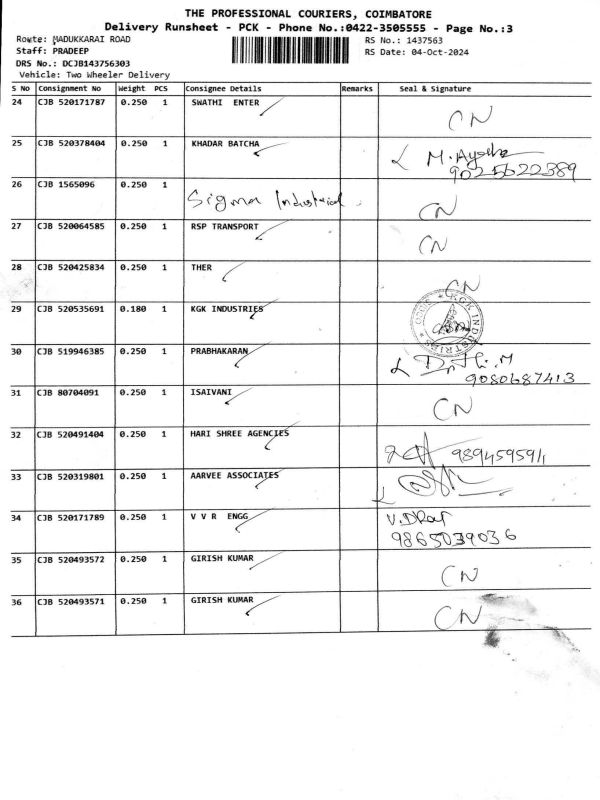 THE PROFESSIONAL COURIERS, COIMBATORE
Delivery Runsheet - PCK - Phone No.:0422-3505555 - Page No.:3
Route: MADUKKARAI ROAD
RS No.: 1437563
Staff: PRADEEP
RS Date: 04-Oct-2024
DRS No.: DCJB143756303
Vehicle: Two Wheeler Delivery
S No Consignment No Weight PCS Consignee Details Remarks Seal & Signature
24 CJB 520171787 0.250 1 SWATHI ENTER
CN
25 CJB 520378404 0.250 1 KHADAR BATCHA
M. Aysha
9025622389
26 CJB 1565096 0.250 1
Sigma Industrial
CN
27 CJB 520064585 0.250 1 RSP TRANSPORT
CN
28 CJB 520425834 0.250 1 THER
CN
29 CJB 520535691 0.180 1 KGK INDUSTRIES
KGK INDUSTRIES
30 CJB 519946385 0.250 1 PRABHAKARAN
9080687413
31 CJB 80704091 0.250 1 ISAIVANI
CN
32 CJB 520491404 0.250 1 HARI SHREE AGENCIES
33 CJB 520319801 0.250 1 AARVEE ASSOCIATES
34 CJB 520171789 0.250 1 V V R ENGG
9865039036
35 CJB 520493572 0.250 1 GIRISH KUMAR
CN
36 CJB 520493571 0.250 1 GIRISH KUMAR
CN